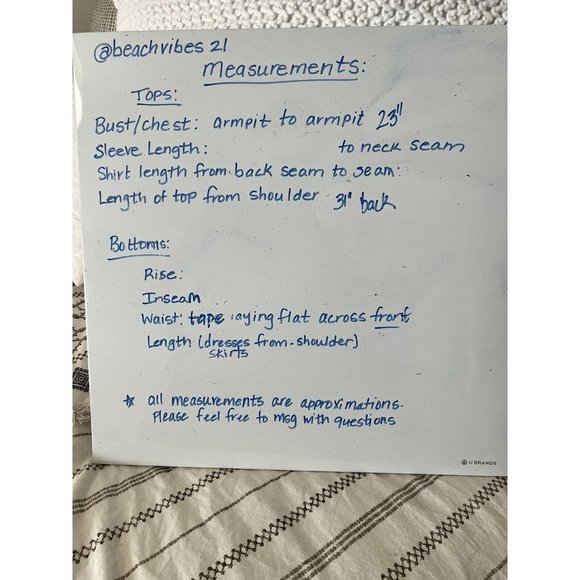 @beachvibes 21
Measurements:
Tops:
Bust/chest: armpit to armpit 23"
Sleeve Length: to neck seam
Shirt length from back seam to seam:
Length of top from shoulder 31" back
Bottoms:
Rise:
Inseam
Waist: tape laying flat across front
Length (dresses from-shoulder)
skirts
* all measurements are approximations.
Please feel free to msg with questions
U BRANDS